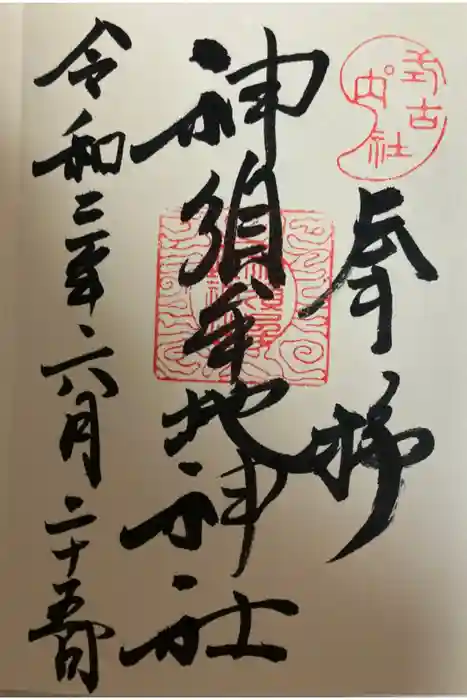 式内古社
奉拝
神須牟地神社
令和二年、六月二十五日